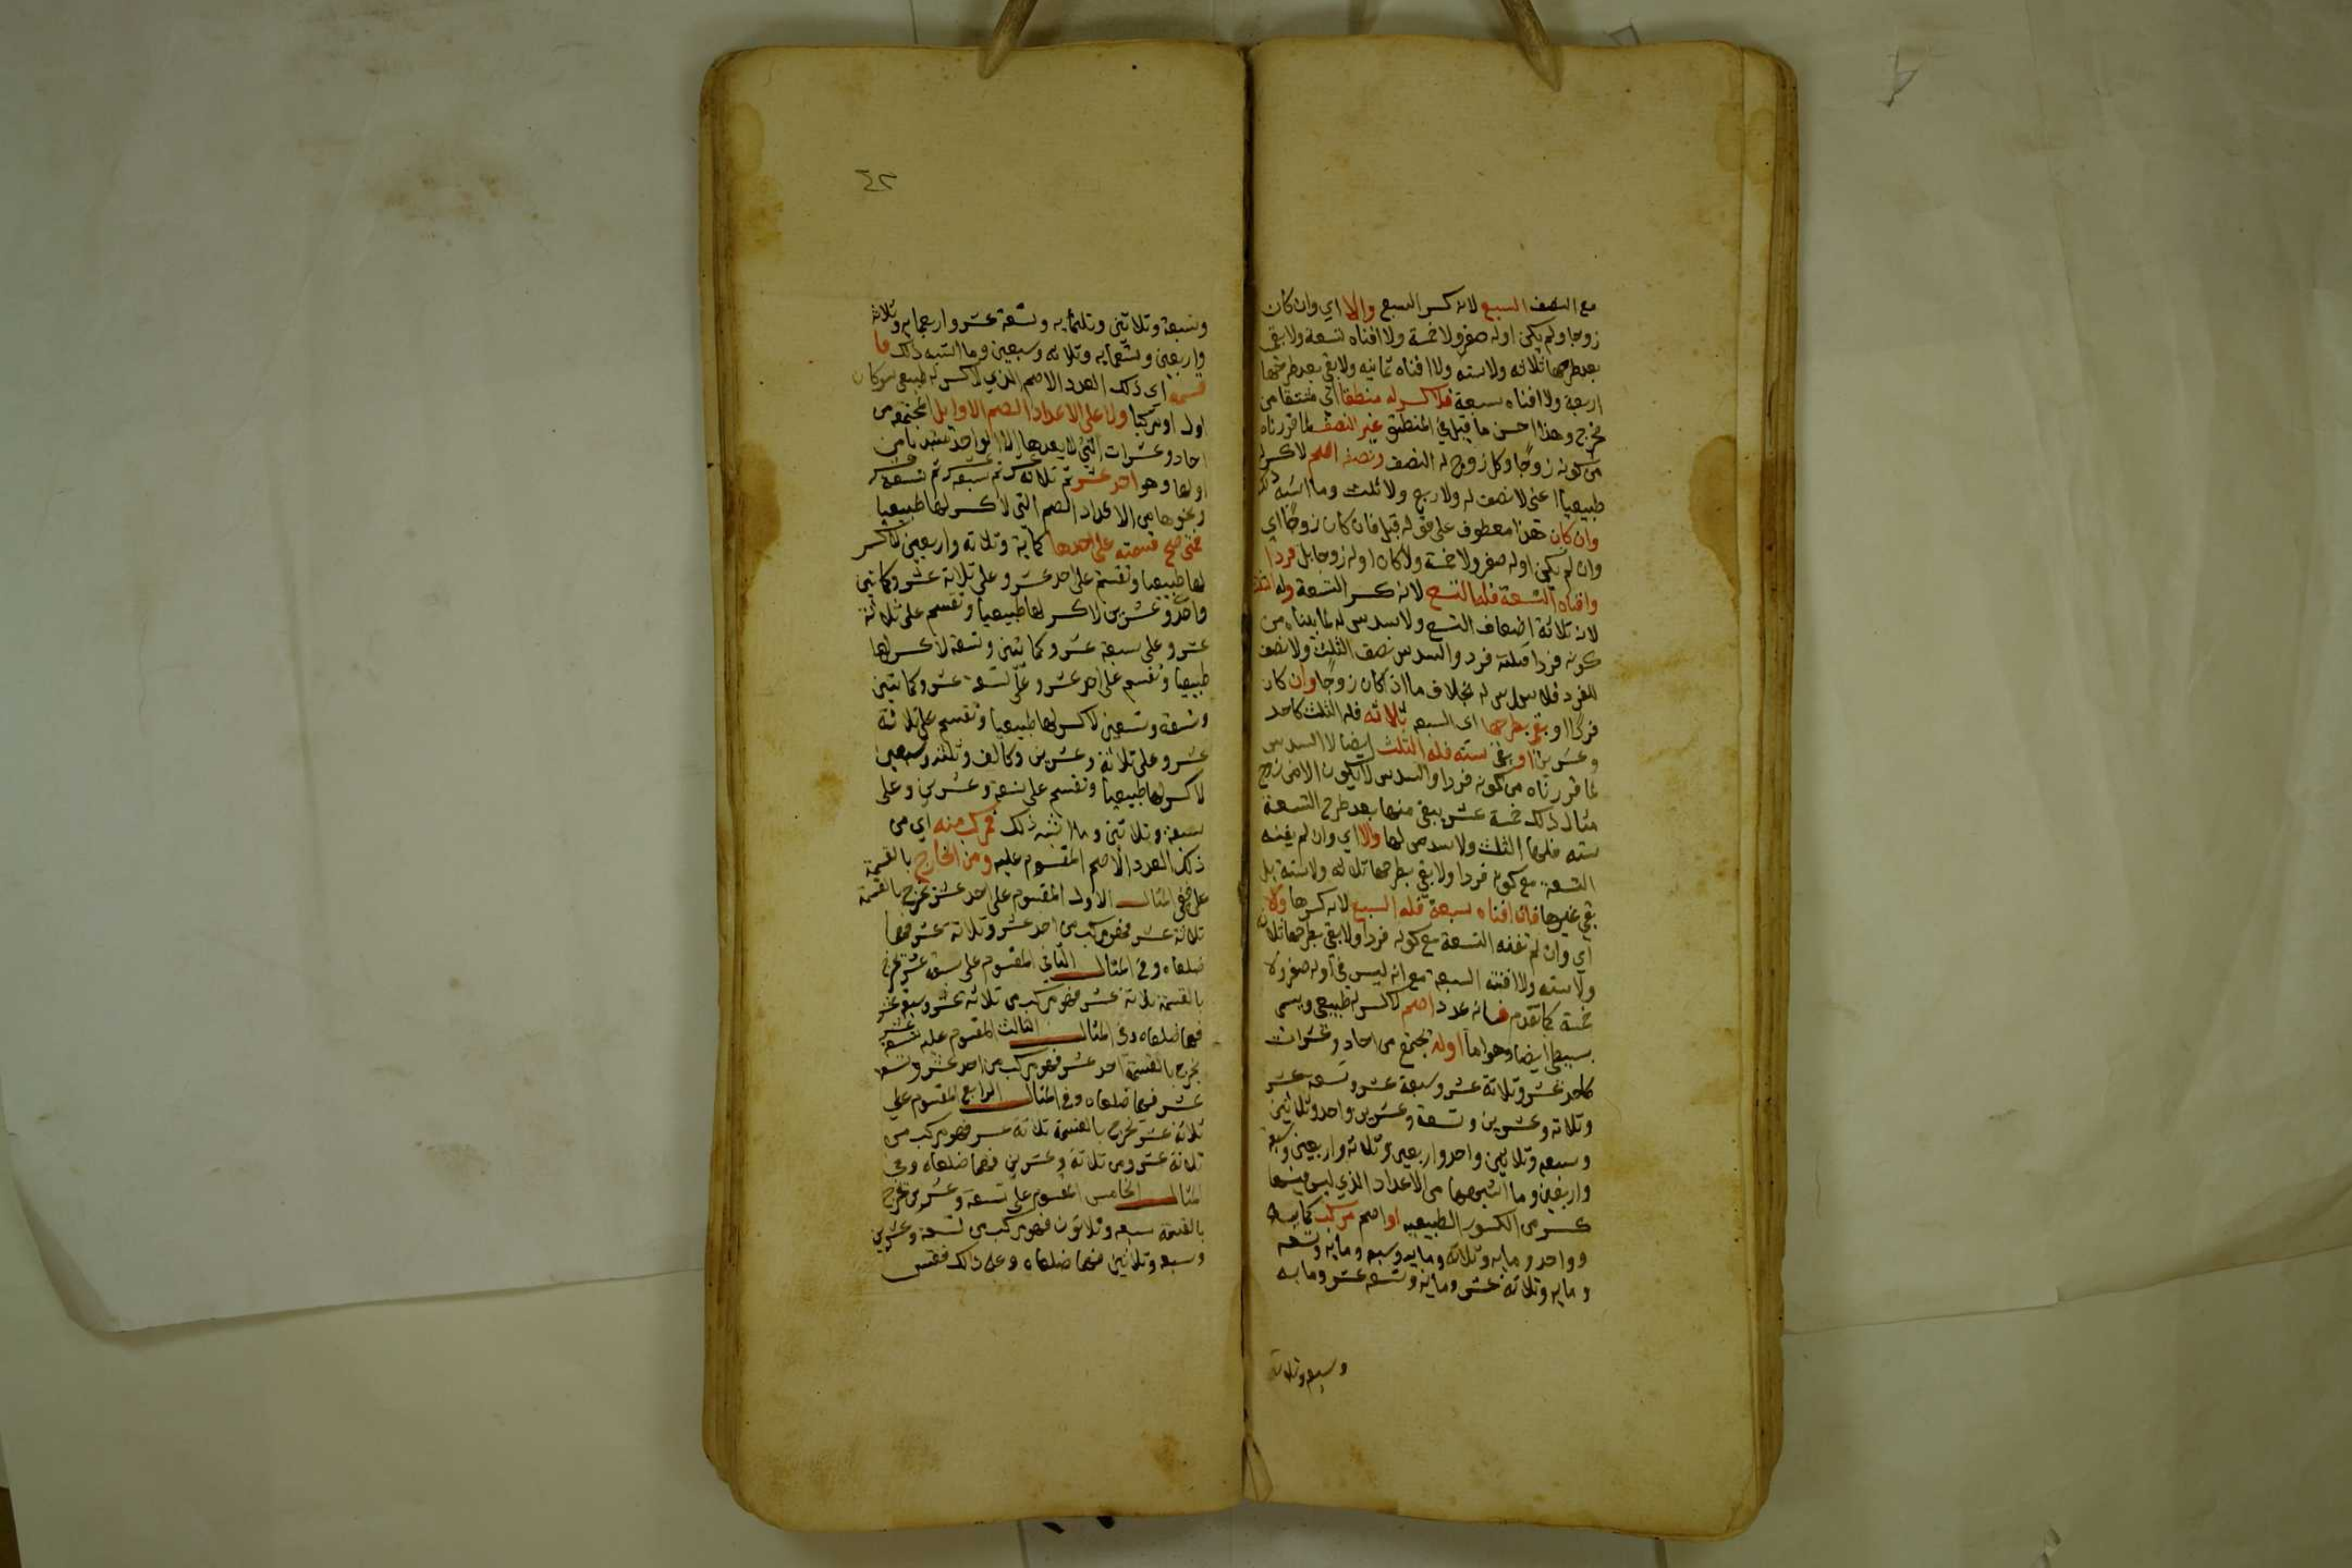 مع النصف السبع لانه كسر السبع والا اي وان كان
زوجا ولم يكن اوله صفر ولا خمسة ولا افناه تسعة ولا بقي
بعد طرحها ثلاثه ولا سته ولا افناه ثمانيه ولا بقي بعد طرحها
اربعة ولا افناه سبعة فلا كسر له منطقا اي مشتقا من
مخرج وهذا احسن ما قيل في المنطق غير النصف لما قررناه
من كونه زوجًا وكل زوج له النصف ونصفه اصم لا كسر له
طبيعيا اعني لا نصف له ولا ربع ولا ثلث وما اشبه ذلك
وان كان هذا معطوف على قوله قبل فان كان زوجًا اي
وان لم يكن اوله صفر ولا خمسة ولا كان اوله زوجا بل فردا
وافناه التسعة فله التسع لانه كسر التسعة وله الثلث
لانه ثلاثة اضعاف التسع ولا سدس له لما بيناه من
كونه فردا فثلثه فرد والسدس نصف الثلث ولا نصف
للفرد فلا سدس له بخلاف ما اذا كان زوجًا وان كان
فردًا او بقي بطرحها اي التسعه ثلاثه فله الثلث كاحد
وعشرين او بقي سته فله الثلث ايضا لا السدس
لما قررناه من كونه فردا والسدس لا يكون الا في زوج
مثال ذلك خمسة عشر يبقى منها بعد طرح التسعة
سته فلها الثلث ولا سدس لها والا اي وان لم يفنه
التسعة مع كونه فردا ولا بقي بطرحها ثلاثه ولا ستة بل
بقي غيرها فان افناه سبعة فله السبع لانه كسرها والا
اي وان لم تفنه التسعة مع كونه فردا ولا بقي بطرحها ثلاثه
ولا سته ولا افنته السبعه مع انه ليس في اوله صفر ولا
خمسة كما تقدم فانه عدد اصم لا كسر له طبيعي ويسمى
بسيطا ايضا وهو اما اوله تجتمع من احاد وعشرات
كاحد عشر وثلاثة عشر وسبعة عشر وتسعه عشر
وثلاثه وعشرين وتسعة وعشرين واحد وثلاثين
وسبعه وثلاثين واحد واربعين وثلاثه واربعين وسبعة
واربعين وما اشبهها من الاعداد الذي ليس فيها
كسر من الكسور الطبيعيه او اصم مركب كمايه
وواحد ومايه وثلاثه ومايه وسبعه ومايه وتسعه
ومايه وثلاثة عشر ومايه وتسعه عشر ومايه
وسبعه وثلاثه
٤٢
وسبعة وثلاثين وثلثمايه وتسعة عشر واربعمايه وثلاثه
واربعين وتسعمايه وثلاثه وسبعين وما اشبه ذلك فا
قسمه اي ذلك العدد الاصم الذي لا كسر له طبيعي سوا كان
اول او مركبا ولا على الاعداد الصم الاوايل المجتمعه من
احاد وعشرات التي لا يعدها الا الواحد مبتديا من
اولها وهو احد عشر ثم ثلاثة عشر ثم سبعه عشر ثم تسعه عشر
ونحوها من الاعداد الصم التي لا كسر لها طبيعيا
فمتى صح قسمته على احدها كماية وثلاثه واربعين لا كسر
لها طبيعيا وتقسم على احد عشر وعلى ثلاثة عشر وكمايتين
واحد وعشرين لا كسر لها طبيعيا وتقسم على ثلاثة
عشر وعلى سبعة عشر وكمائتين وتسعة لا كسر لها
طبيعيا وتقسم على احد عشر وعلى تسعة عشر وكمايتين
وتسعة وتسعين لا كسر لها طبيعيا وتقسم على ثلاثة
عشر وعلى ثلاثة وعشرين وكالف وثلثه وسبعين
لا كسر لها طبيعيا وتقسم على تسعة وعشرين وعلى
سبعة وثلاثين وما اشبه ذلك فمركب منه اي من
ذلك العدد الاصم المقسوم عليه ومن الخارج بالقسمة
على ففي المثال الاول المقسوم على احد عشر يخرج بالقسمة
ثلاثة عشر فهو مركب من احد عشر وثلاثة عشر فهما
ضلعاه وفي المثال الثاني المقسوم على سبعة عشر يخرج
بالقسمة ثلاثة عشر فهو مركب من ثلاثة عشر وسبعة عشر
فهما ضلعاه وفي المثال الثالث المقسوم عليه تسعة عشر
يخرج بالقسمة احد عشر فهو مركب من احد عشر وتسعة
عشر فهما ضلعاه وفي المثال الرابع المقسوم على
ثلاثة عشر يخرج بالقسمة ثلاثة عشر فهو مركب من
ثلاثة عشر ومن ثلاثة وعشرين فهما ضلعاه وفي
المثال الخامس المقسوم على تسعة وعشرين يخرج
بالقسمة سبعه وثلاثون فهو مركب من تسعة وعشرين
وسبعه وثلاثين فهما ضلعاه وعلى ذلك فقس